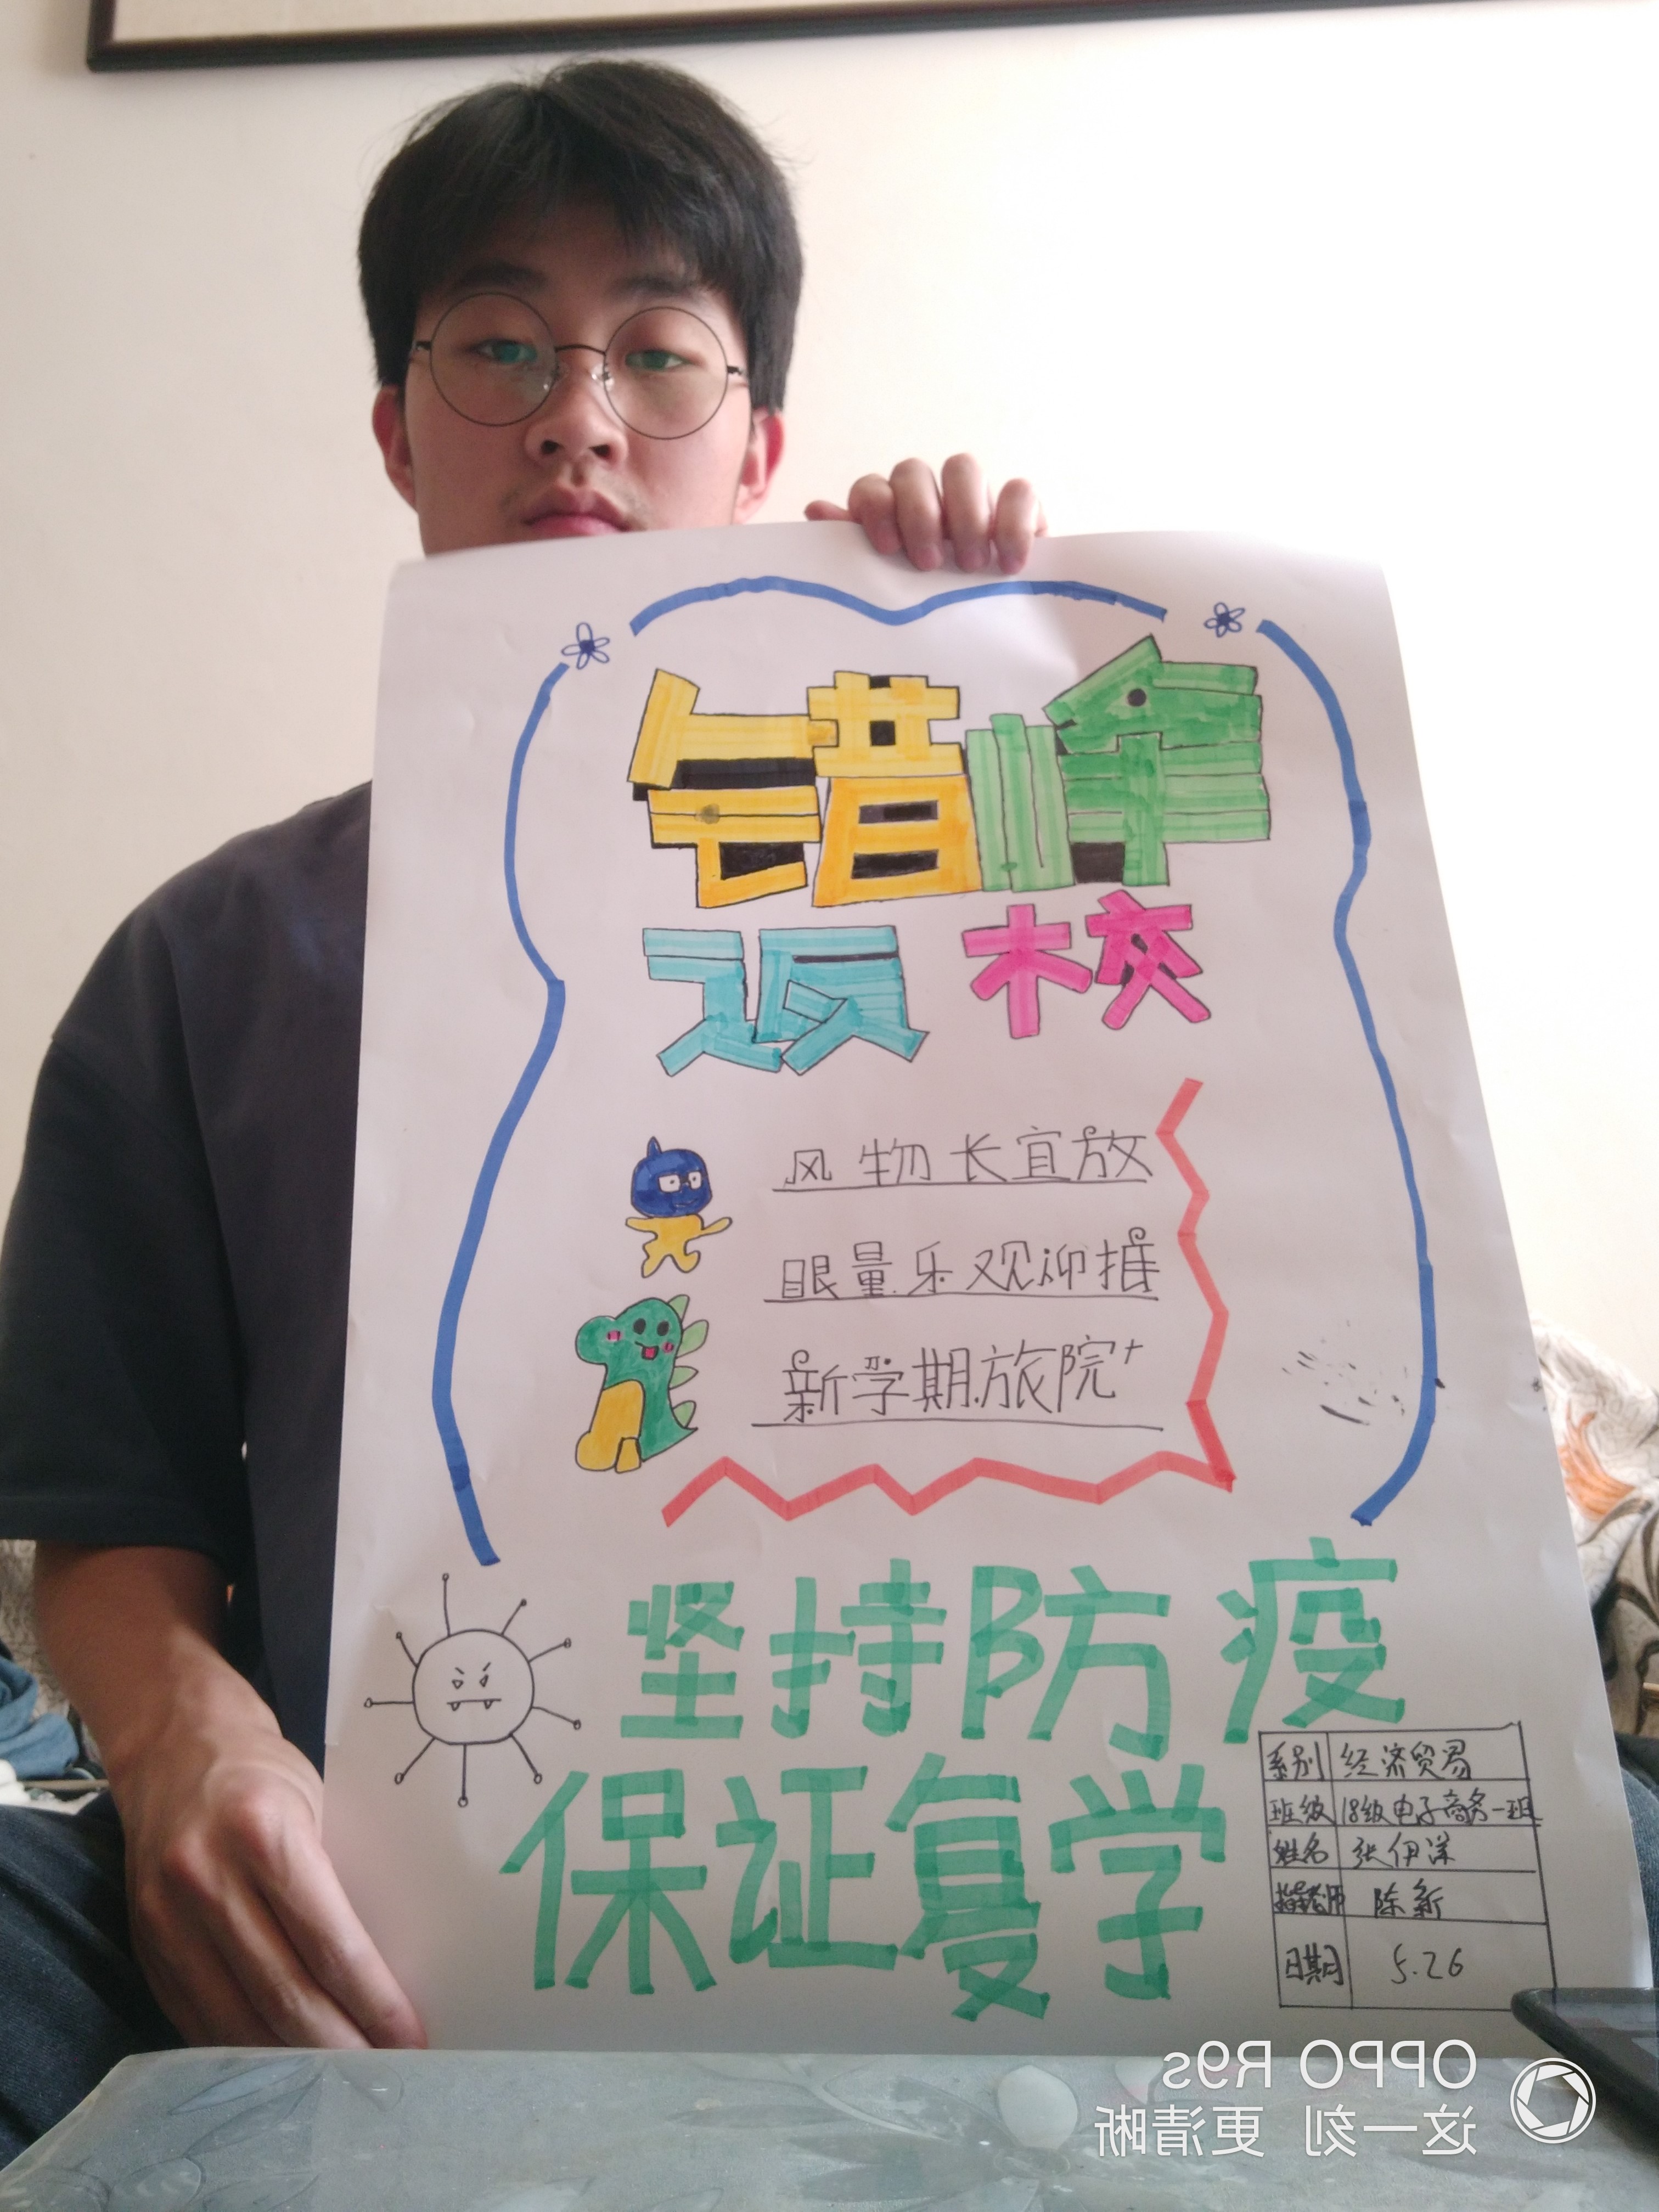 错峰
返校
风物长宜放
眼量乐观迎推
新学期旅院+
坚持防疫
保证复学
系别 经济贸易
班级 18级电子商务一班
姓名 张伊洋
指导老师 陈新
日期 5.26
OPPO R9s
这一刻 更清晰